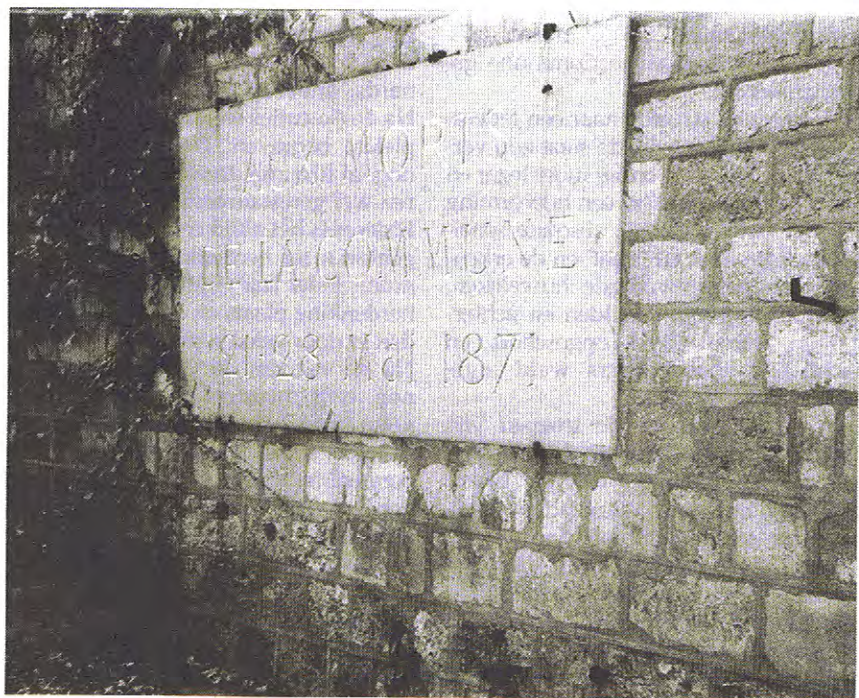 AUX MORTS
DE LA COMMUNE
21·28 Mai 1871